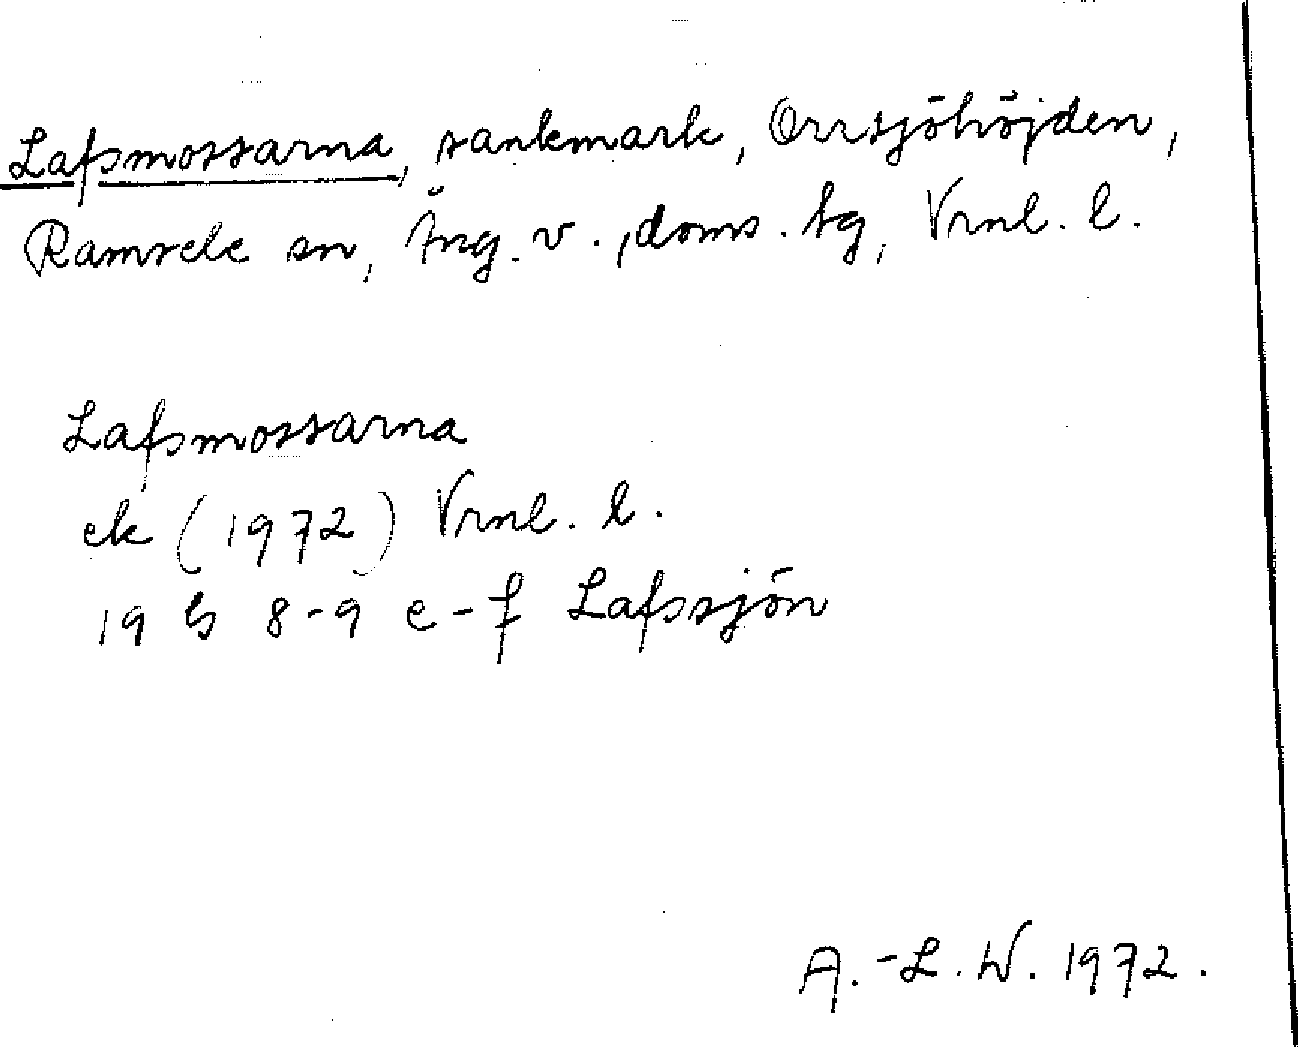 Lafsmossarna, sankmark, Orrsjöhöjden,
Ramsele sn, Ång. v., doms. tg, Vrnl. l.
Lafsmossarna
ek (1972) Vrnl. l.
19 G 8-9 e-f Lafssjön
A.-L. W. 1972.